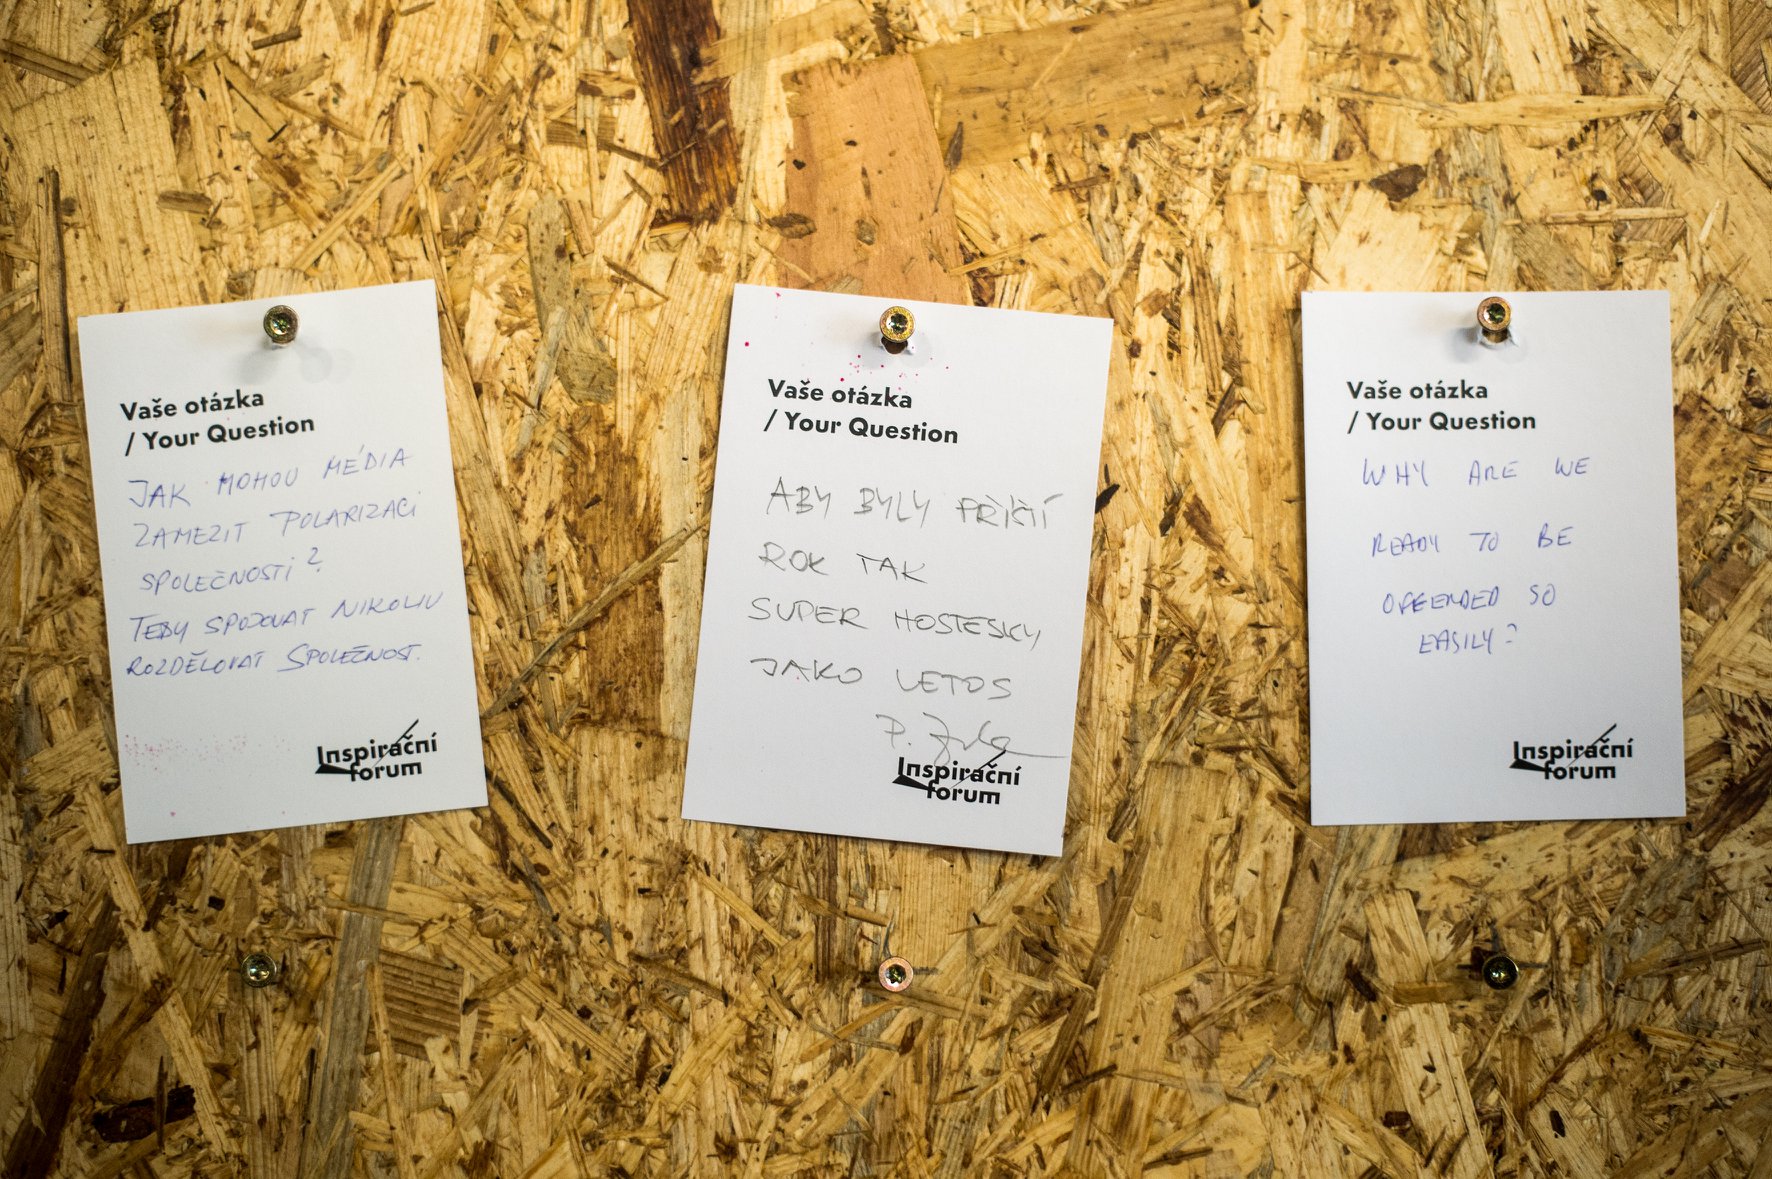 Vaše otázka
/ Your Question
JAK MOHOU MÉDIA
ZAMEZIT POLARIZACI
SPOLEČNOSTI?
TEDY SPOJOVAT NIKOLIV
ROZDĚLOVAT SPOLEČNOST.
Inspirační
forum
Vaše otázka
/ Your Question
ABY BYLY PŘÍŠTÍ
ROK TAK
SUPER HOSTESKY
JAKO LETOS
P.
Inspirační
forum
Vaše otázka
/ Your Question
WHY ARE WE
READY TO BE
OFFENDED SO
EASILY?
Inspirační
forum